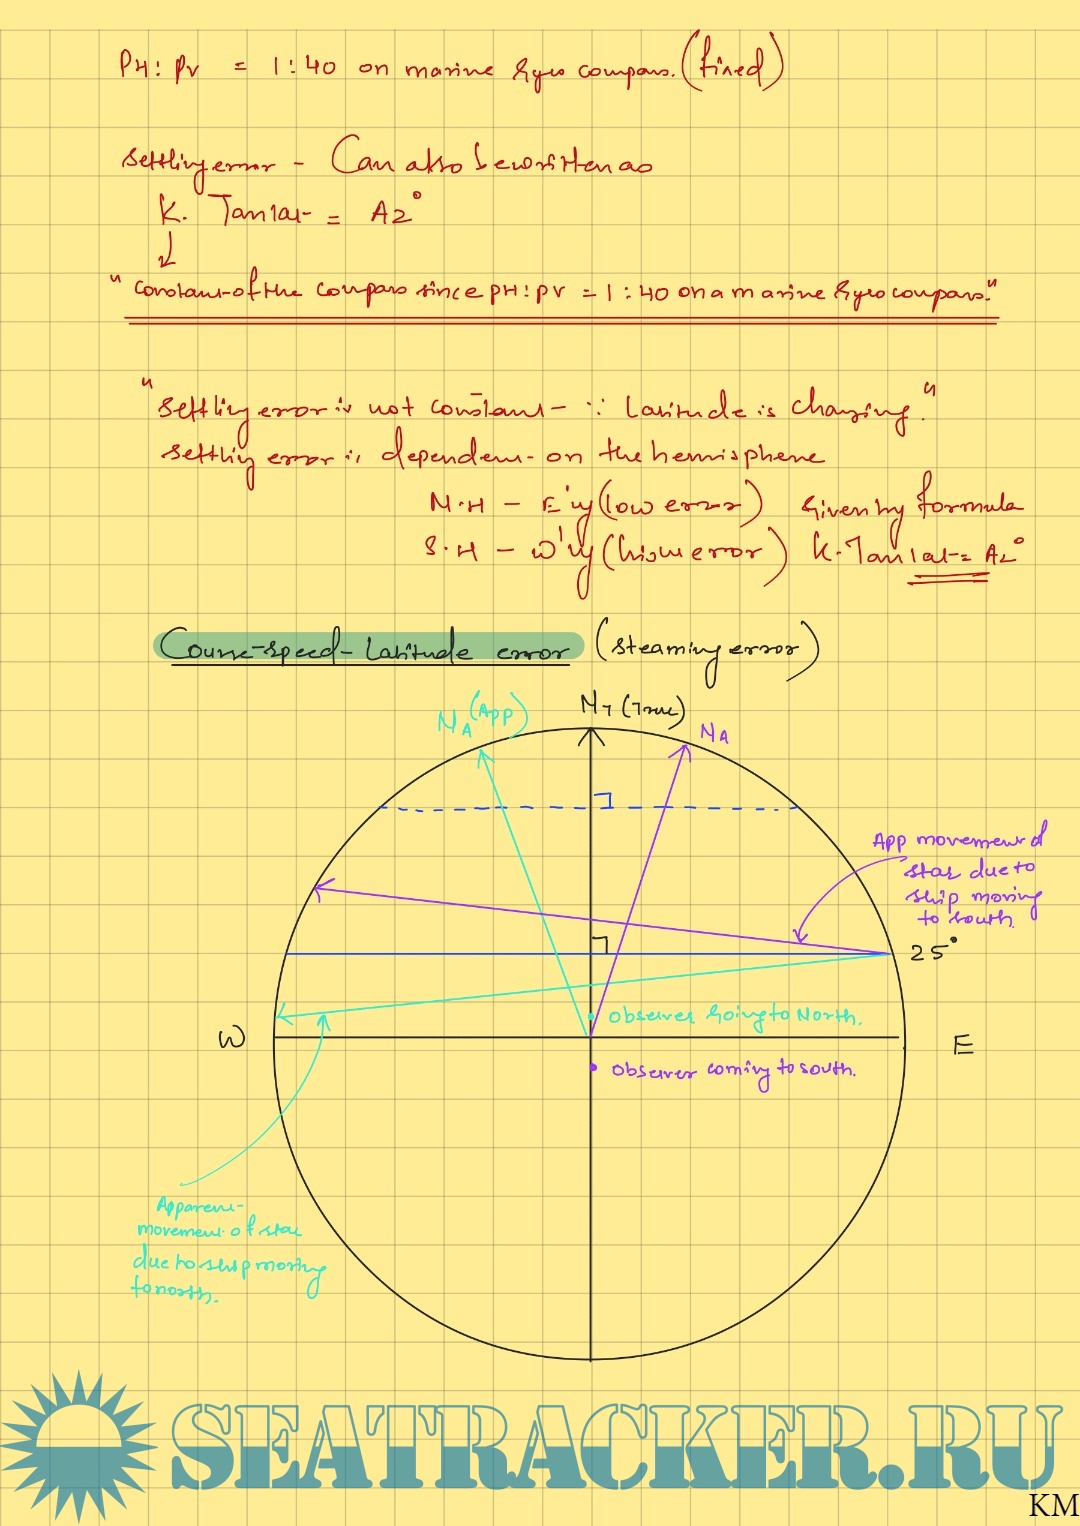 PH : PV = 1 : 40 on marine Gyro compass. (fixed)
Settling error - Can also be written as
K. Tan lat = AZ°
"constant of the compass since PH : PV = 1 : 40 on a marine Gyro compass."
"Settling error is not constant ∵ Latitude is changing."
Settling error is dependent on the hemisphere
N.H - E'ly (low error) Given by formula
S.H - W'ly (high error) K. Tan lat = AZ°
Course-speed-Latitude error (Steaming error)
NA (App)
NT (True)
NA
App movement of
star due to
ship moving
to south.
25°
Observer Going to North.
W
E
Observer coming to south.
Apparent
movement of star
due to ship moving
to north.
SEATRACKER.RU
KM